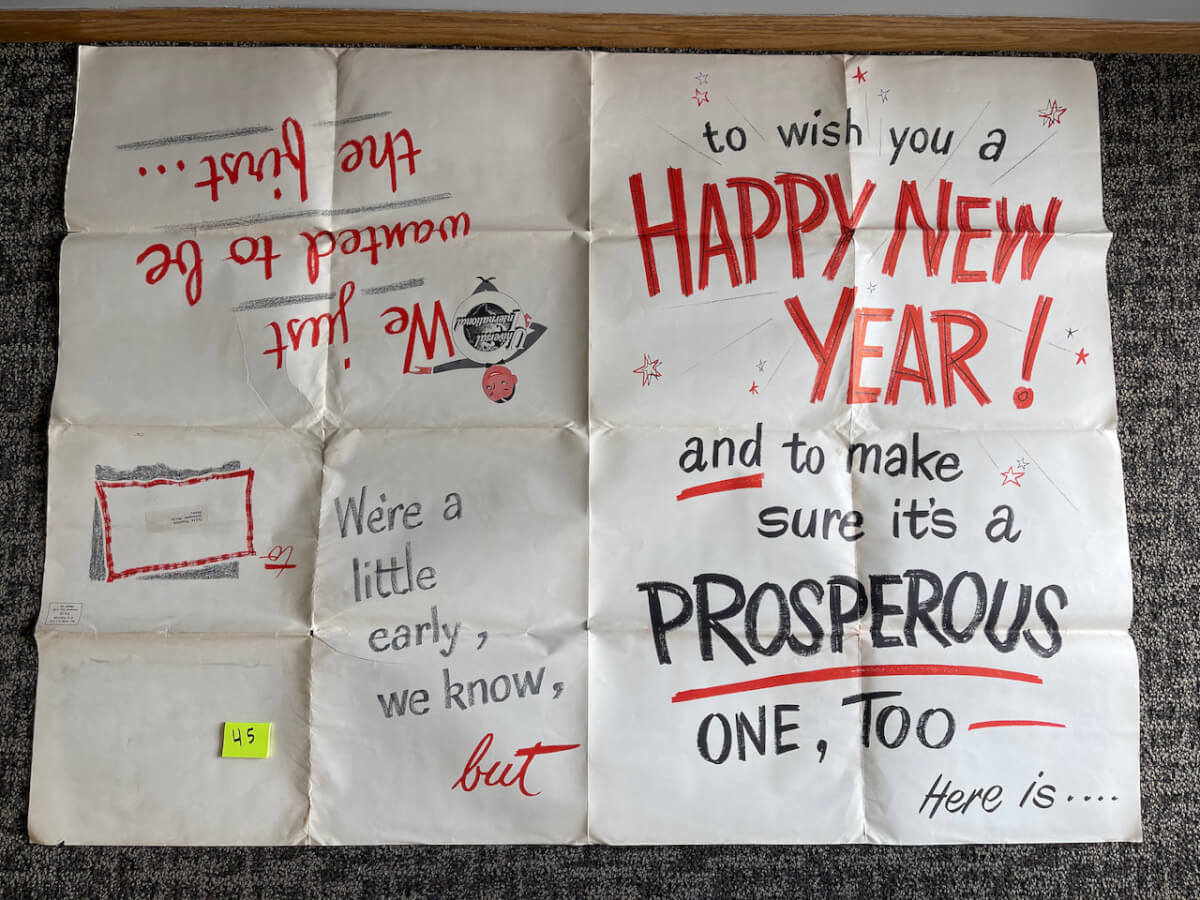 We're a
little
early,
we know,
but
We just
wanted to be
the first...
to wish you a
HAPPY NEW
YEAR!
and to make
sure it's a
PROSPEROUS
ONE, TOO—
Here is....
Universal
International
to
45